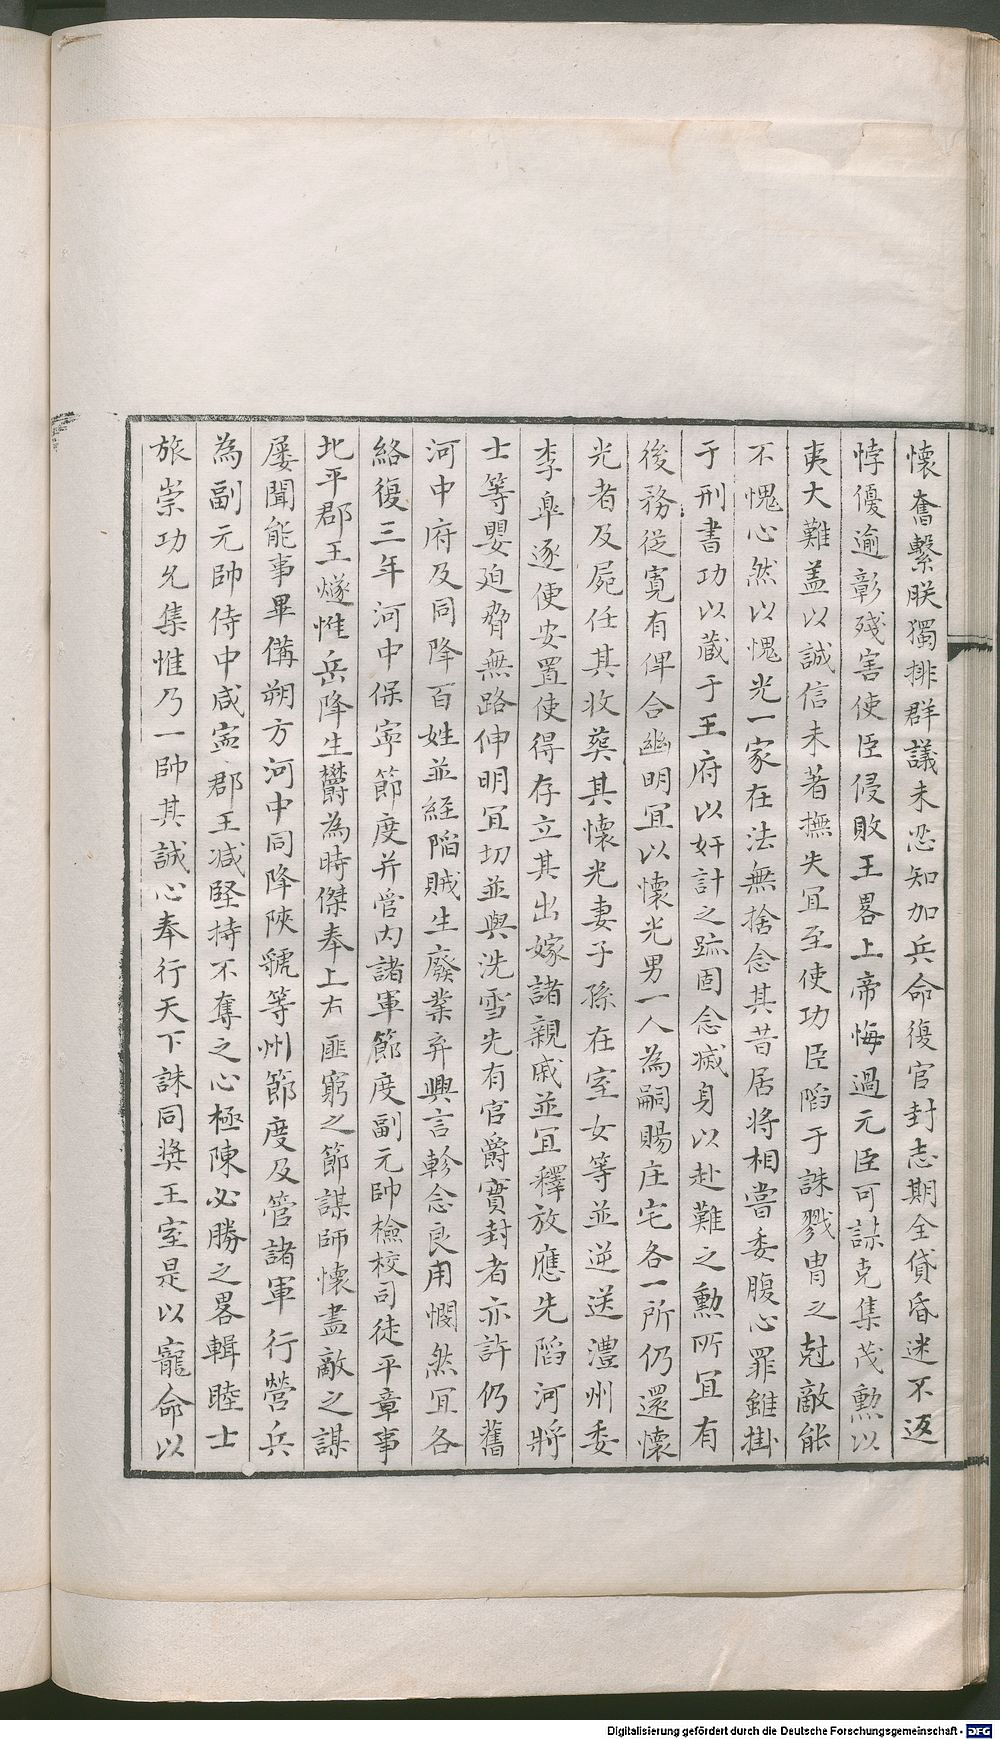 懷奮繫朕獨排群議未忍知加兵命復官封志期全貸昏迷不返
悖優逾彰殘害使臣侵敗王畧上帝悔過元臣可謀克集茂勲以
夷大難盖以誠信未著撫失冝至使功臣陷于誅戮胄之尅敵能
不愧心然以愧光一家在法無捨念其昔居将相嘗委腹心罪雖掛
于刑書功以蔵于王府以奸計之跡固念滅身以赴難之勲所冝有
後務從寛有俾合幽明冝以懷光男一人為嗣賜庄宅各一所仍還懷
光者及屍任其收葬其懷光妻子孫在室女等並逆送澧州委
李臯逐便安置使得存立其出嫁諸親戚並冝釋放應先陷河將
士等嬰廹脅無路伸明冝切並與洗雪先有官爵實封者亦許仍舊
河中府及同降百姓並経陷賊生廢業弃興言軫念良用憫然冝各
絡復三年河中保寜節度并管内諸軍節度副元帥檢校司徒平章事
北平郡王燧惟岳降生欝為時傑奉上右匪窮之節謀師懷盡敵之謀
屡聞能事畢備朔方河中同降陜虢等州節度及管諸軍行營兵
為副元帥侍中咸寍郡王减堅持不奪之心極陳必勝之畧輯睦士
旅崇功允集惟乃一帥其誠心奉行天下誅同奬王室是以寵命以
Digitalisierung gefördert durch die Deutsche Forschungsgemeinschaft - DFG